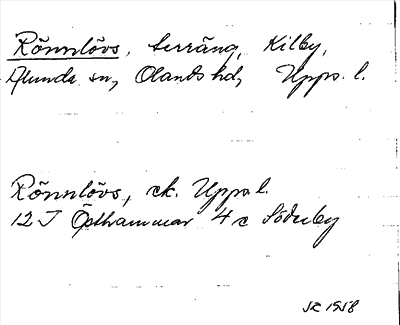 Rönnlövs, terräng, Kilby,
Alunda sn, Olands hd, Upps. l.
Rönnlövs, ek. Upps l.
12 J Östhammar 4 c Söderby
JZ 1958